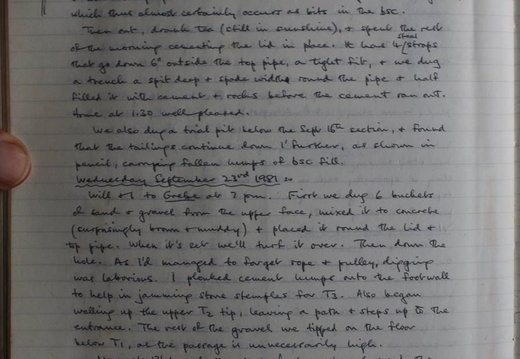 which thus almost certainly occurs as bits in the bsc.
Then out, drank tea (still in sunshine), & spent the rest
of the morning cementing the lid in place. It has 4 steel straps
that go down 6" outside the top pipe, a tight fit, & we dug
a trench a spit deep & spade width round the pipe & half
filled it with cement & rocks before the cement ran out.
Home at 1.30 well pleased.
We also dug a trial pit below the Sept 16th section, & found
that the tailings continue down 1' further, as shown in
pencil, carrying fallen lumps of bsc fill.
Wednesday September 23rd 1981
Will & I to Grebe at 2 pm. First we dug 6 buckets
of sand & gravel from the upper face, mixed it to concrete
(surprisingly brown & muddy) & placed it round the lid &
top pipe. When it's set we'll turf it over. Then down the
hole. As I'd managed to forget rope & pulley, digging
was laborious. I plonked cement lumps onto the footwall
to help in jamming stone stemples for T3. Also began
walling up the upper T2 tip, leaving a path & steps up to the
entrance. The rest of the gravel we tipped on the floor
below T1, as the passage is unnecessarily high.